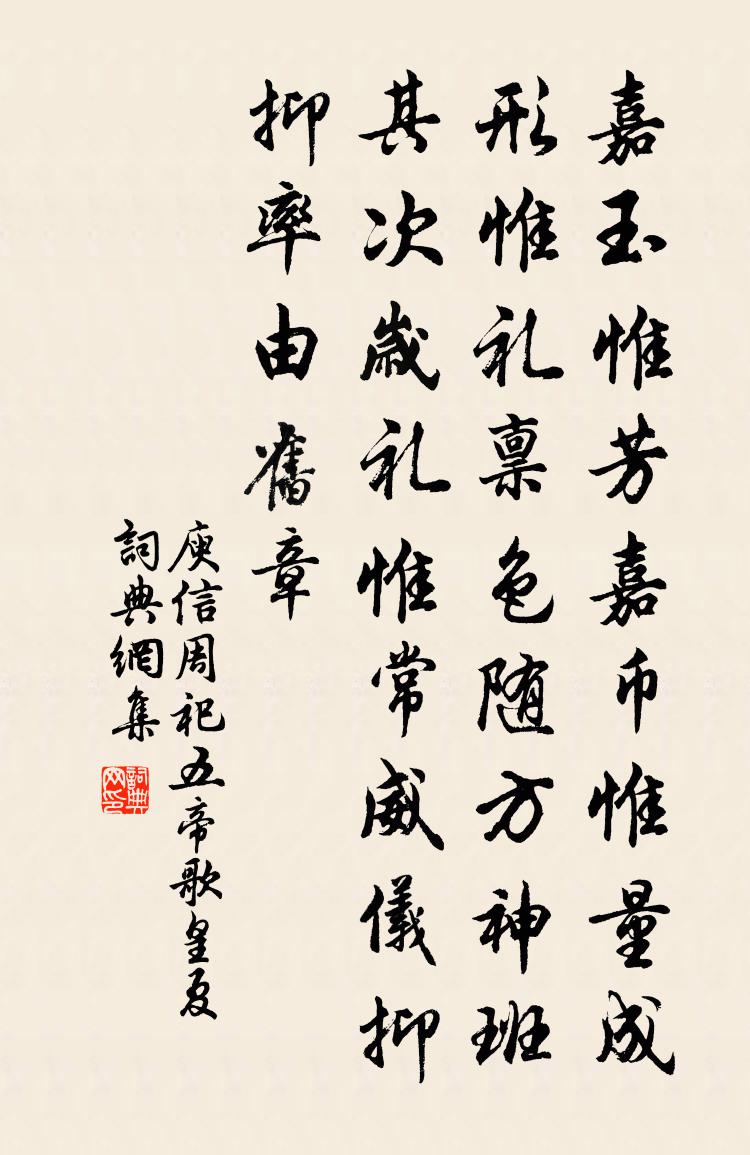 嘉玉惟芳嘉币惟量成
形惟礼禀色随方神班
其次歲礼惟常威儀抑
抑率由舊章
庾信周祀五帝歌皇夏
詞典網集
詞典
网印